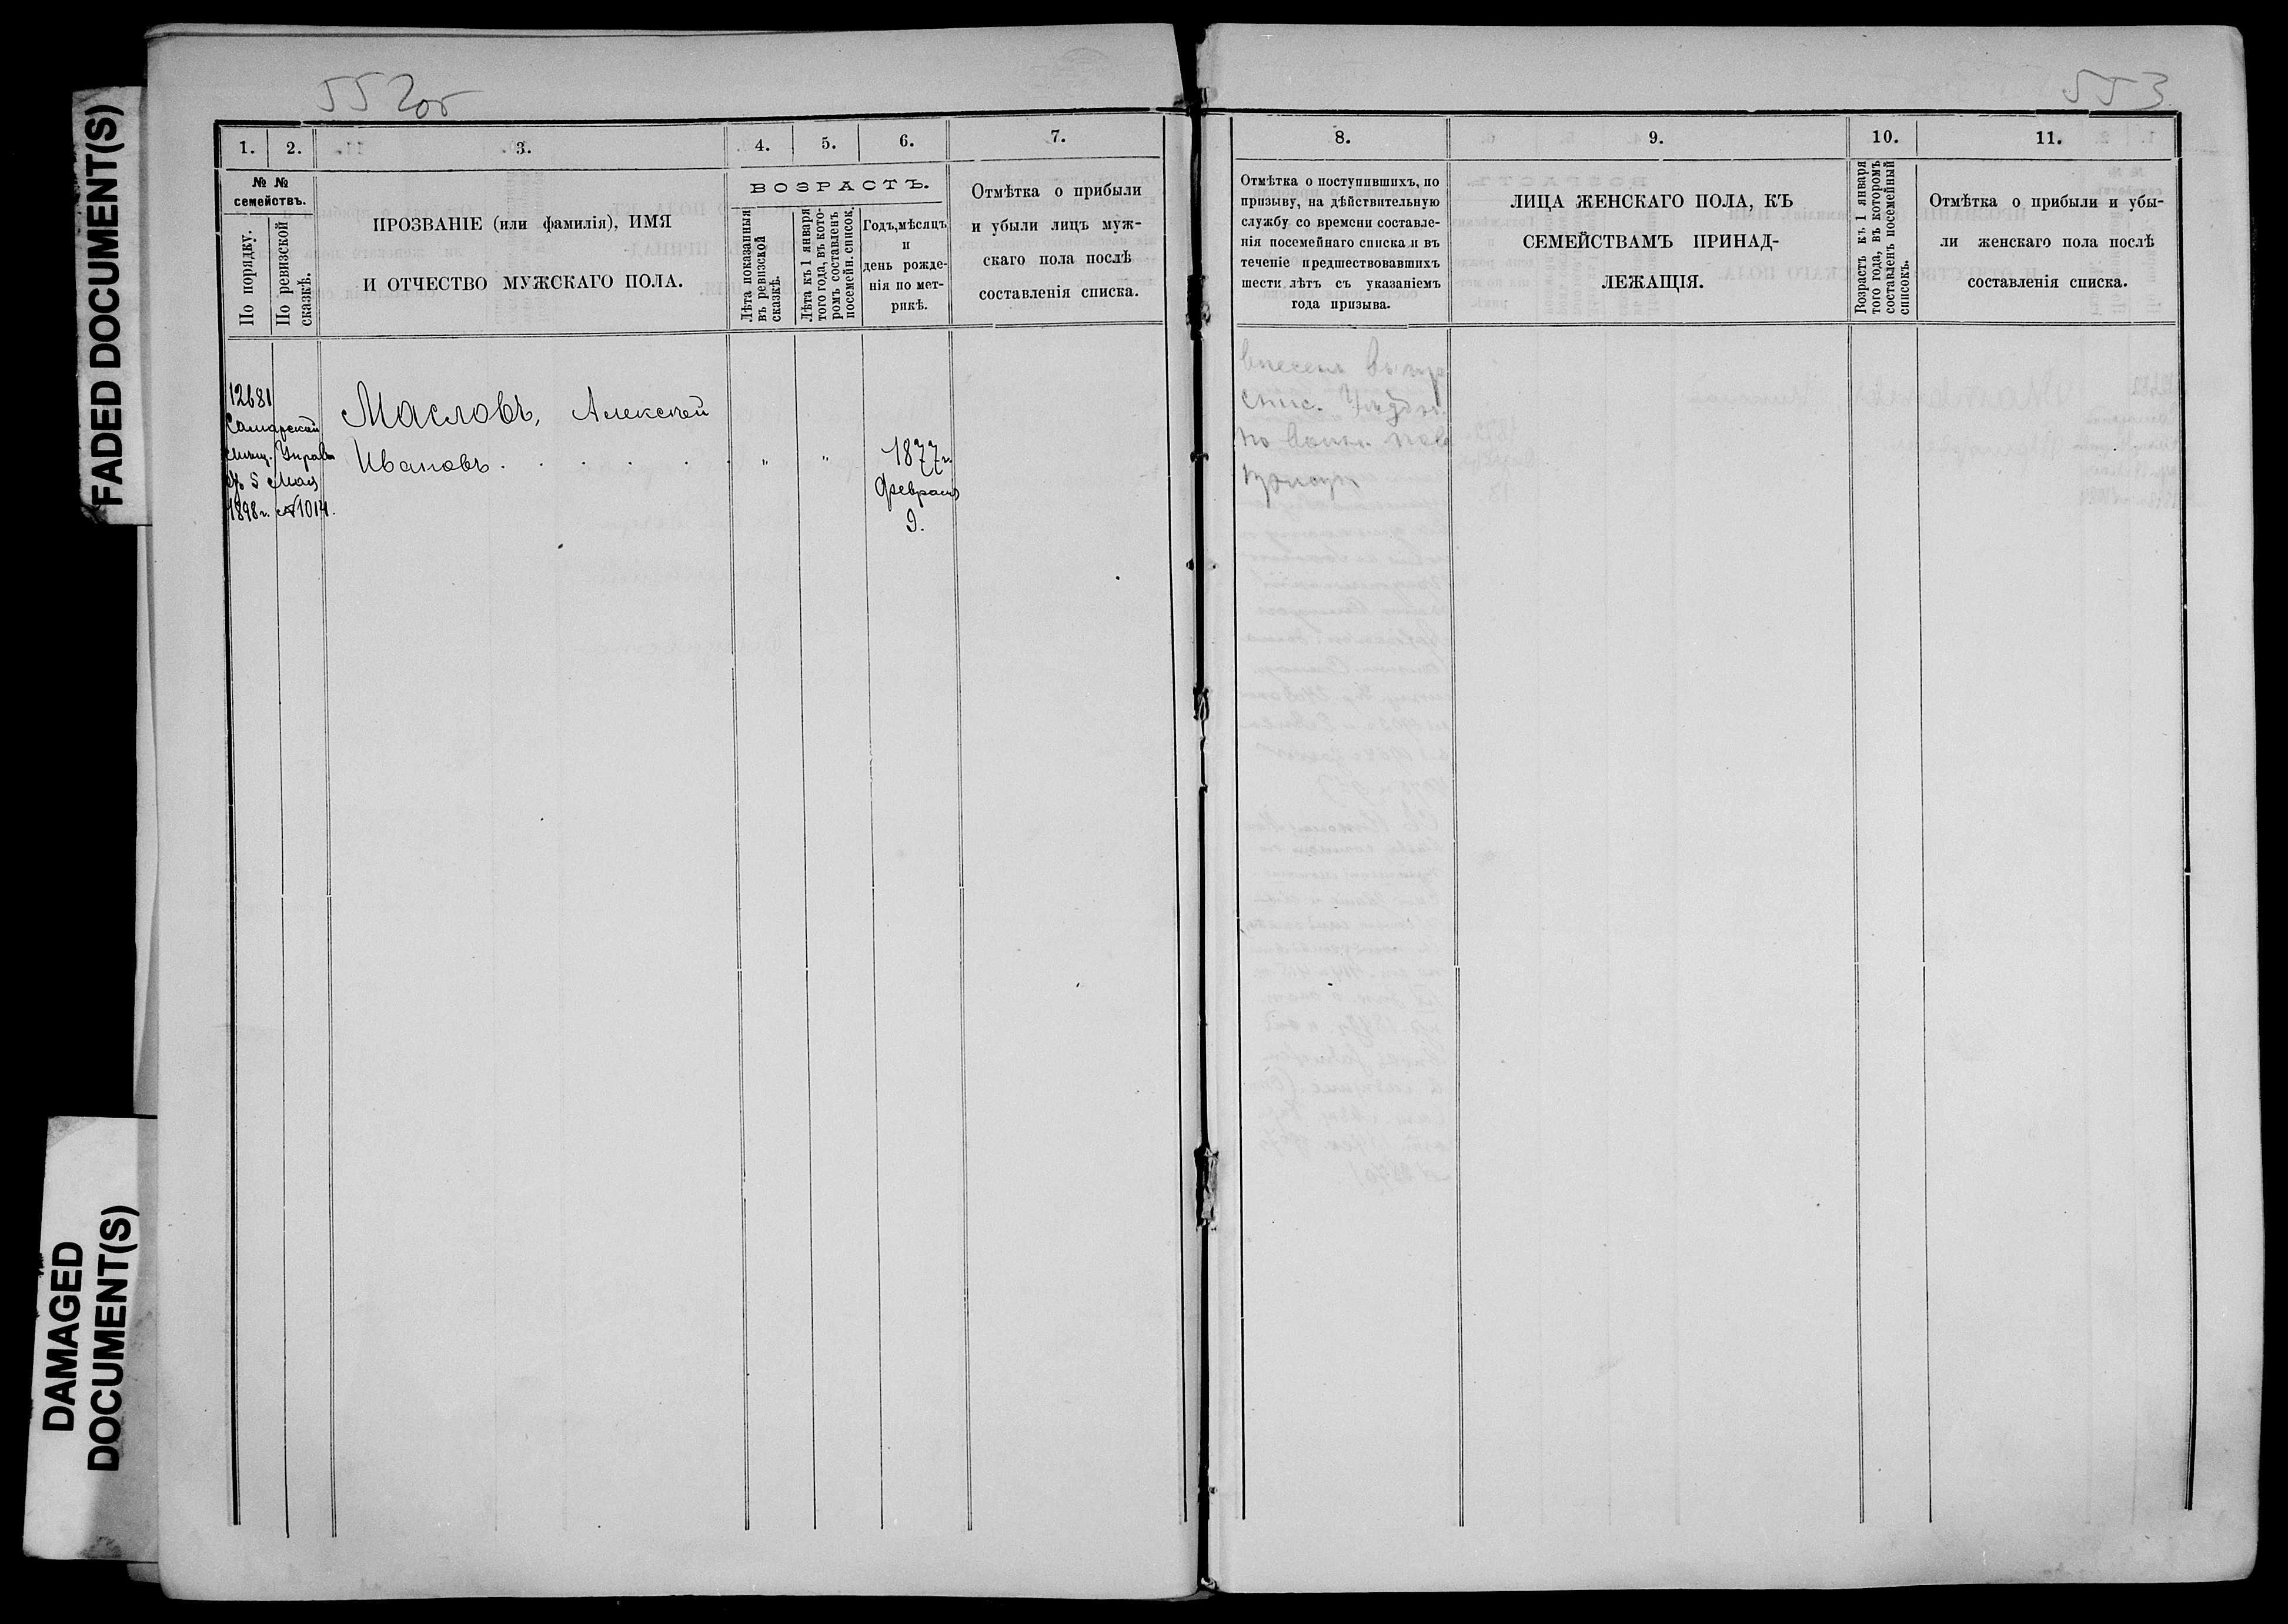 FADED DOCUMENT(S)
DAMAGED
DOCUMENT(S)
552об
1.
2.
3.
4.
5.
6.
7.
№ №
семействъ.
По порядку.
По ревизской
сказкѣ.
ПРОЗВАНІЕ (или фамилія), ИМЯ
И ОТЧЕСТВО МУЖСКАГО ПОЛА.
ВОЗРАСТЪ.
Лѣта показанныя
въ ревизской
сказкѣ.
Лѣта къ 1 января
того года, въ кото-
ромъ составленъ
посемейн. список.
Годъ, мѣсяцъ
и
день рожде-
нія по мет-
рикѣ.
Отмѣтка о прибыли
и убыли лицъ муж-
скаго пола послѣ
составленія списка.
12681
Самарской
мѣщ. Управы
5 Мая
1898 г. №1014.
Масловъ, Алексѣй
Ивановъ . . . . . " "
1877 г.
Февраля
9.
553
8.
9.
10.
11.
Отмѣтка о поступившихъ, по
призыву, на дѣйствительную
службу со времени составле-
нія посемейнаго списка и въ
теченіе предшествовавшихъ
шести лѣтъ съ указаніемъ
года призыва.
ЛИЦА ЖЕНСКАГО ПОЛА, КЪ
СЕМЕЙСТВАМЪ ПРИНАД-
ЛЕЖАЩІЯ.
Возрастъ къ 1 января
того года, въ которомъ
составленъ посемейный
списокъ.
Отмѣтка о прибыли и убы-
ли женскаго пола послѣ
составленія списка.
внесенъ
спис.
по воинс. пов